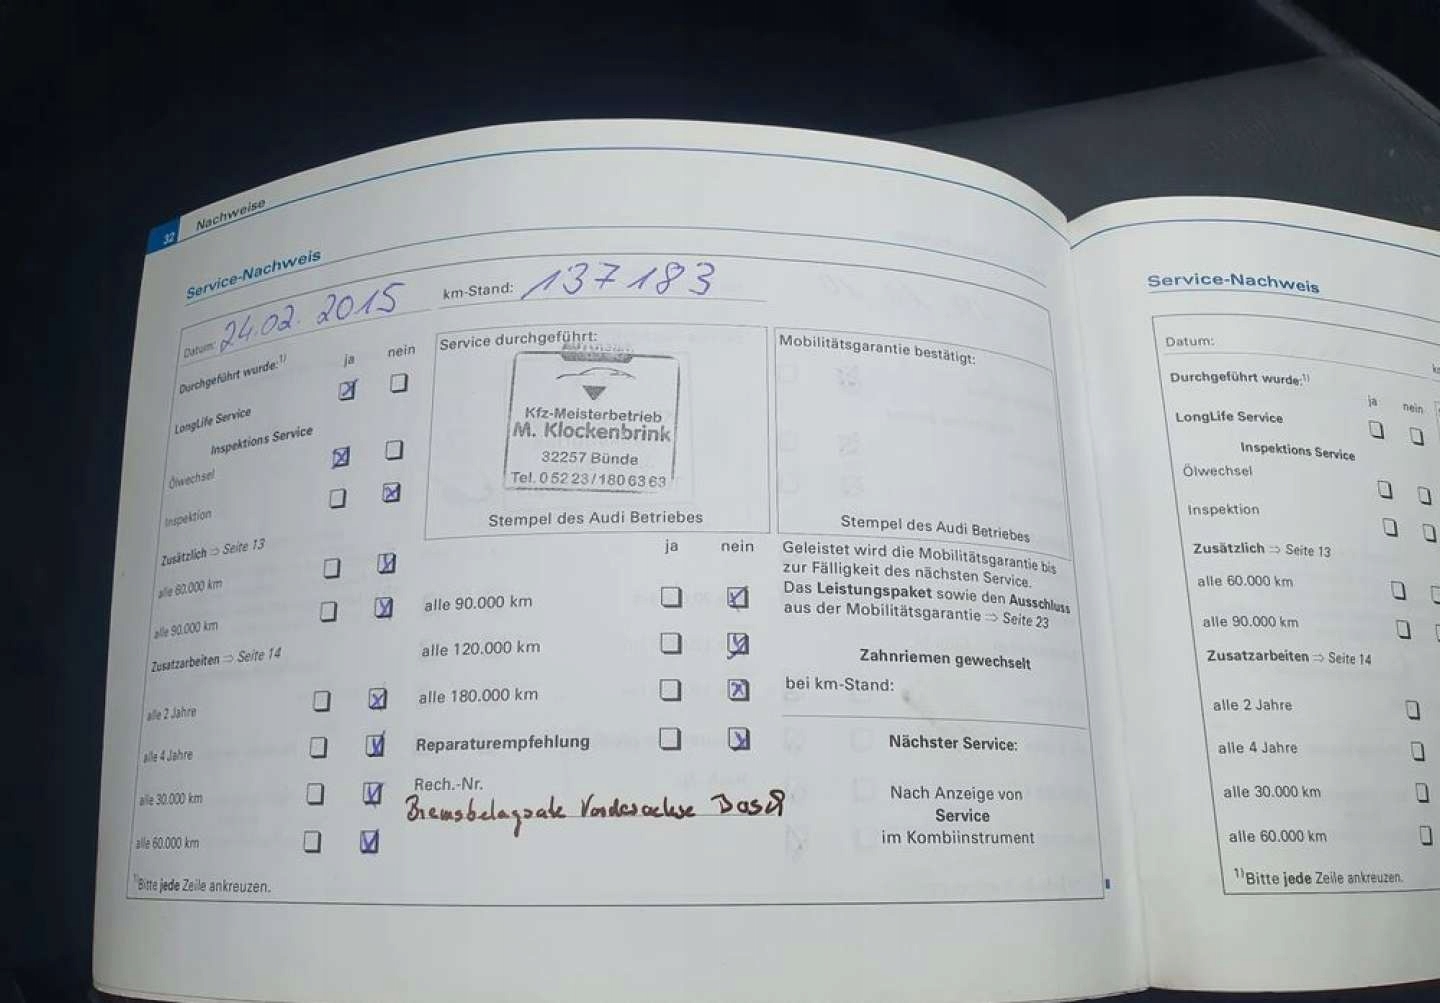 32 Nachweise
Service-Nachweis
Datum: 24.02.2015 km-Stand: 137183
Durchgeführt wurde:1) ja nein
LongLife Service
Inspektions Service
Ölwechsel
Inspektion
Zusätzlich ⇒ Seite 13
alle 60.000 km
alle 90.000 km
Zusatzarbeiten ⇒ Seite 14
alle 2 Jahre
alle 4 Jahre
alle 30.000 km
alle 60.000 km
1)Bitte jede Zeile ankreuzen.
Service durchgeführt:
Kfz-Meisterbetrieb
M. Klockenbrink
32257 Bünde
Tel. 0 52 23 / 180 63 63
Stempel des Audi Betriebes
ja nein
alle 90.000 km
alle 120.000 km
alle 180.000 km
Reparaturempfehlung
Rech.-Nr.
Bremsbelagsate Vorderachse Bosch
Mobilitätsgarantie bestätigt:
Stempel des Audi Betriebes
Geleistet wird die Mobilitätsgarantie bis
zur Fälligkeit des nächsten Service.
Das Leistungspaket sowie den Ausschluss
aus der Mobilitätsgarantie ⇒ Seite 23
Zahnriemen gewechselt
bei km-Stand:
Nächster Service:
Nach Anzeige von
Service
im Kombiinstrument
Service-Nachweis
Datum:
Durchgeführt wurde:1)
ja nein
LongLife Service
Inspektions Service
Ölwechsel
Inspektion
Zusätzlich ⇒ Seite 13
alle 60.000 km
alle 90.000 km
Zusatzarbeiten ⇒ Seite 14
alle 2 Jahre
alle 4 Jahre
alle 30.000 km
alle 60.000 km
1)Bitte jede Zeile ankreuzen.